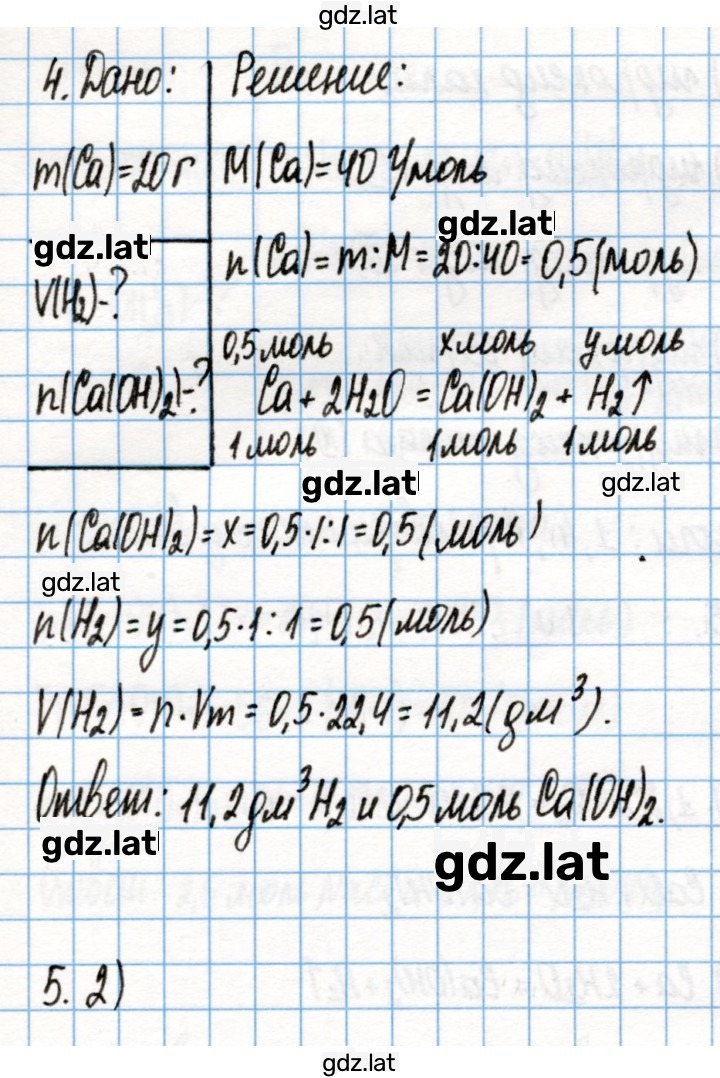 gdz.lat
4. Дано:
Решение:
m(Ca)=20 г
M(Ca)=40 г/моль
gdz.lat
gdz.lat
n(Ca)=m:M=20:40=0,5(моль)
V(H₂)-?
0,5 моль х моль у моль
n(Ca(OH)₂)-?
Ca+2H₂O=Ca(OH)₂+H₂↑
1 моль 1 моль 1 моль
gdz.lat
gdz.lat
n(Ca(OH)₂)=x=0,5·1:1=0,5(моль)
gdz.lat
n(H₂)=y=0,5·1:1=0,5(моль)
V(H₂)=n·Vm=0,5·22,4=11,2(дм³).
Ответ: 11,2 дм³ H₂ и 0,5 моль Ca(OH)₂.
gdz.lat
gdz.lat
5. 2)
gdz.lat